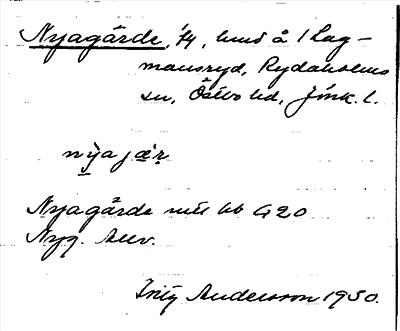 Nyagärde, 1/4, hmd å 1 Lag-
mansryd, Rydaholms
sn, Östbo hd, Jönk. l.
nỳa jæ̀r
Nyagärde nuk bb G20
Nyg. Auv.
Fritz Andersson 1930.